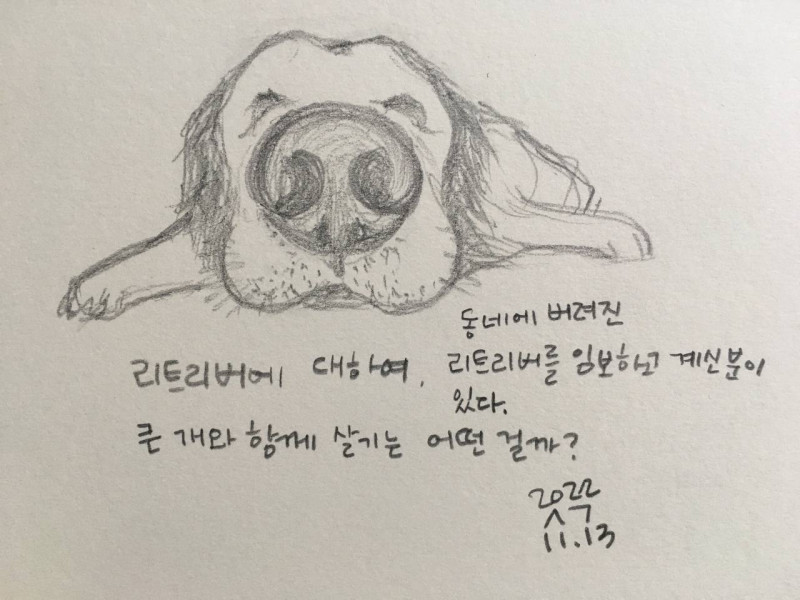 동네에 버려진
리트리버에 대하여, 리트리버를 임보하고 계신분이
있다.
큰 개와 함께 살기는 어떤 걸까?
2022
11.13